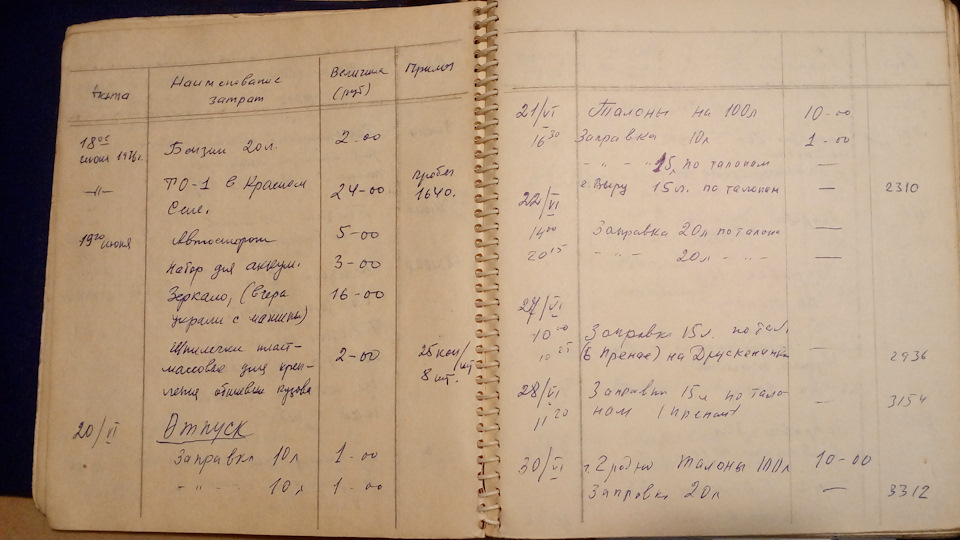 Дата
Наименование затрат
Величина (руб)
Примеч
18ое июня 1976г. Бензин 20л. 2-00
—"— ТО-1 в Красном 24-00 пробег
Селе. 1640.
19го июня 5-00
Набор для аккум. 3-00
Зеркало, (вчера 16-00
украли с машины)
Шпилечки пласт- 2-00 25 коп/шт
массовые для креп- 8 шт.
ления обшивки кузова
20/VI Отпуск
Заправка 10л 1-00
- " - 10л 1-00
21/VI Талоны на 100л 10-00
16 30 Заправка 10л 1-00
- " - " 15л по талонам —
г. Выру 15л. по талонам — 2310
22/VI
14 00 Заправка 20л по талонам —
20 15 - " - 20л - " - —
27/VI
10 00 Заправка 15л по тал.
10 25 на Друскенинкай — 2936
28/VI Заправка 15л по тало- — 3154
11 20 ном
30/VI г. Гродно Талоны 100л 10-00
Заправка 20л — 3312